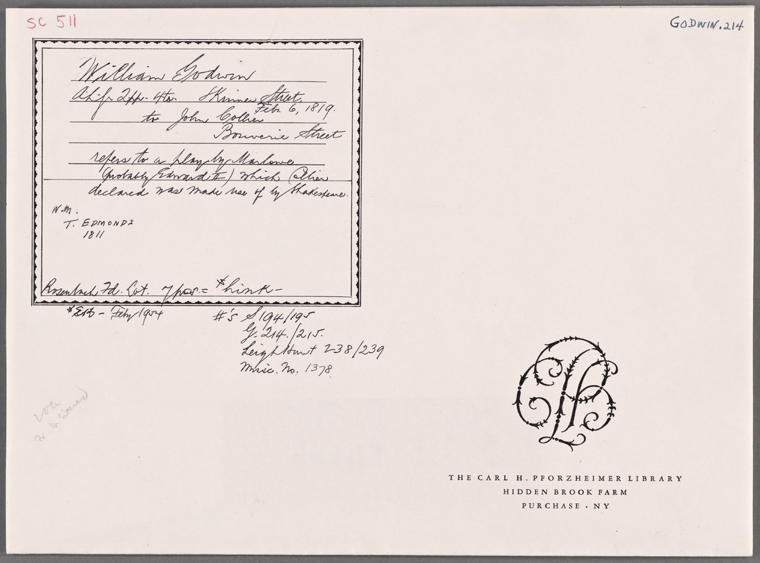 SC 511
GODWIN.214
William Godwin
A.l.s. 2pp. 4to. Skinner Street,
Feb. 6, 1819.
to John Collier
Bouverie Street
refers to a play by Marlowe
(probably Edward II) which Collier
declared was made use of by Shakespeare.
W.M.
T. EDMONDS
1811
Rosenbach Fd. Lot. 7 =
* - Feby 1954
#'s S 194/195
G. 214./215.
Leigh Hunt 238/239
Misc. No. 1378
THE CARL H. PFORZHEIMER LIBRARY
HIDDEN BROOK FARM
PURCHASE · NY